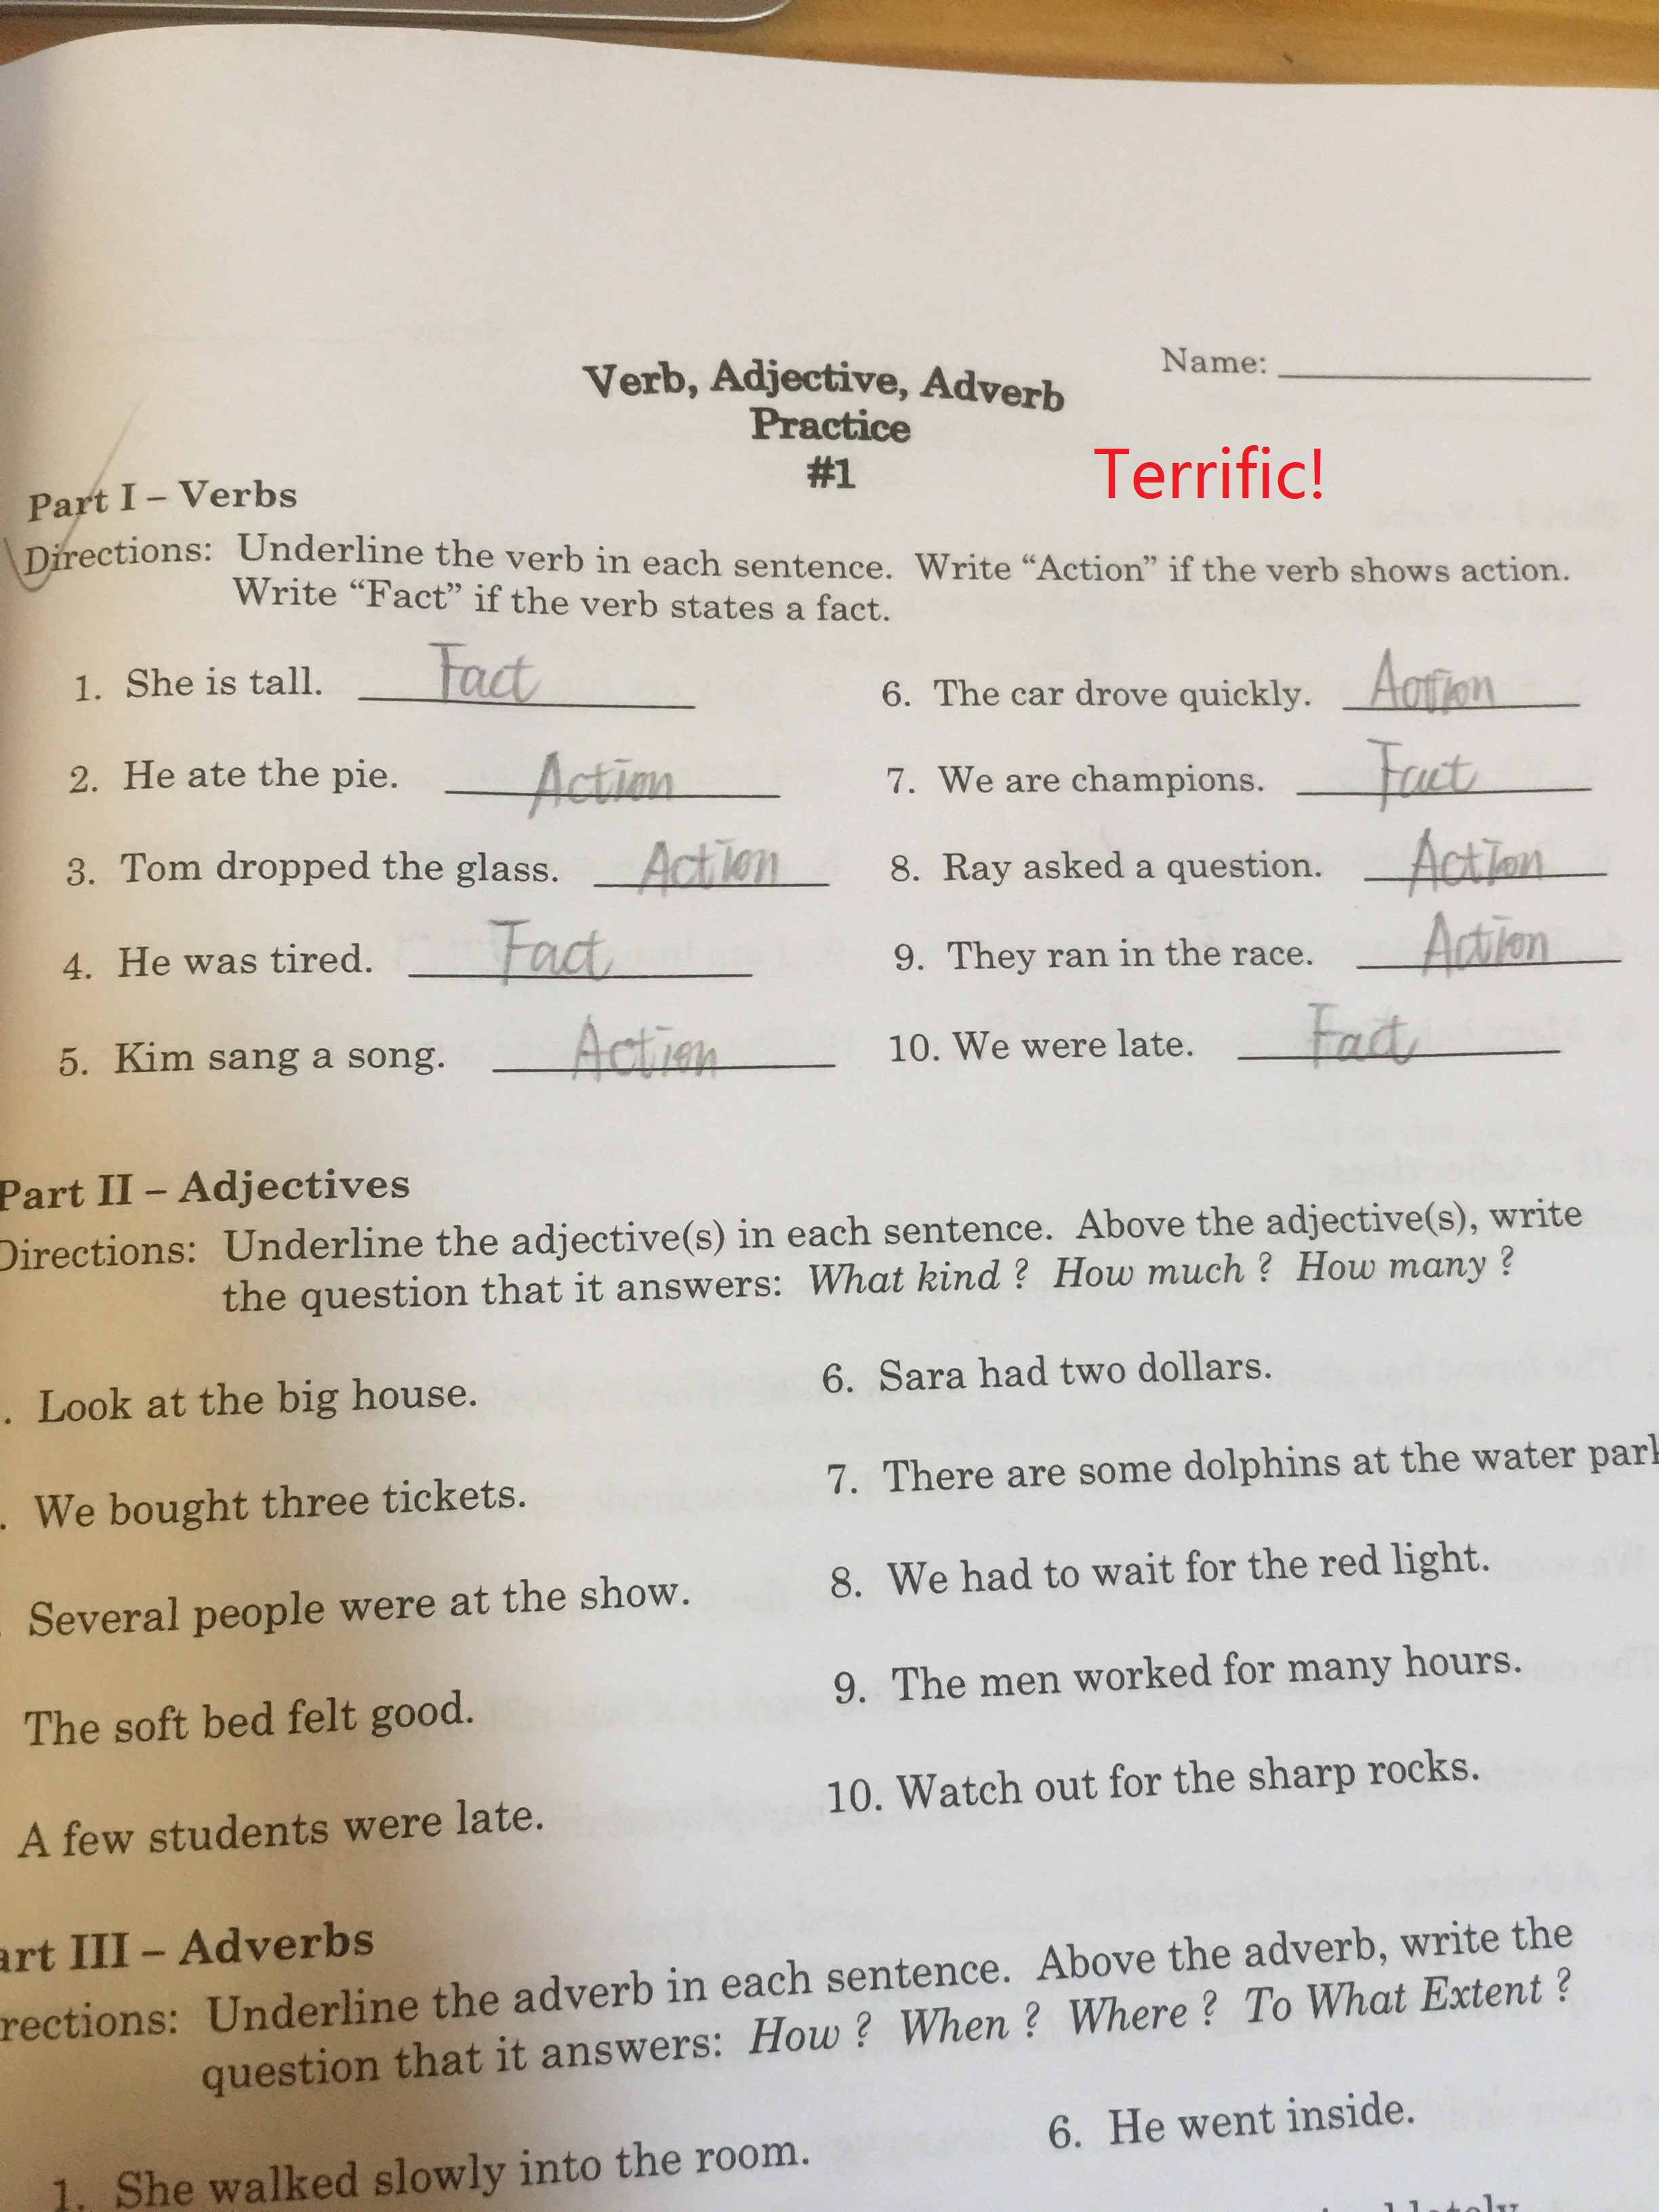 Name:
Verb, Adjective, Adverb
Practice
#1
Terrific!
Part I – Verbs
Directions: Underline the verb in each sentence. Write “Action” if the verb shows action.
Write “Fact” if the verb states a fact.
1. She is tall. Fact
2. He ate the pie. Action
3. Tom dropped the glass. Action
4. He was tired. Fact
5. Kim sang a song. Action
6. The car drove quickly. Action
7. We are champions. Fact
8. Ray asked a question. Action
9. They ran in the race. Action
10. We were late. Fact
Part II – Adjectives
Directions: Underline the adjective(s) in each sentence. Above the adjective(s), write
the question that it answers: What kind ? How much ? How many ?
. Look at the big house.
. We bought three tickets.
Several people were at the show.
The soft bed felt good.
A few students were late.
6. Sara had two dollars.
7. There are some dolphins at the water park
8. We had to wait for the red light.
9. The men worked for many hours.
10. Watch out for the sharp rocks.
art III – Adverbs
rections: Underline the adverb in each sentence. Above the adverb, write the
question that it answers: How ? When ? Where ? To What Extent ?
1. She walked slowly into the room.
6. He went inside.